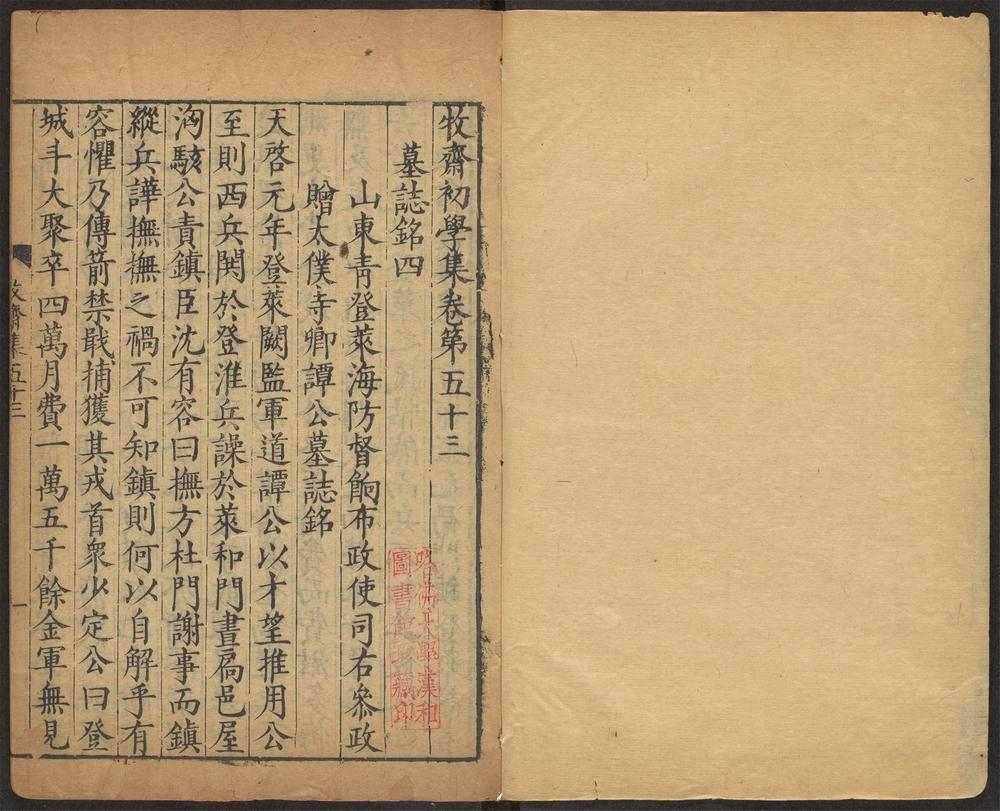 牧齋初學集卷第五十三
墓誌銘四
山東青登萊海防督餉布政使司右叅政
贈太僕寺卿譚公墓誌銘
天啓元年登萊闕監軍道譚公以才望推用公
至則西兵鬨於登淮兵譟於萊和門晝扃邑屋
洶駭公責鎮臣沈有容曰撫方杜門謝事而鎮
縱兵譁撫撫之禍不可知鎮則何以自解乎有
容懼乃傳箭禁戢捕獲其戎首衆少定公曰登
城斗大聚卒四萬月費一萬五千餘金軍無見
牧齋集五十三
一
哈佛大學漢和
圖書館珍藏印